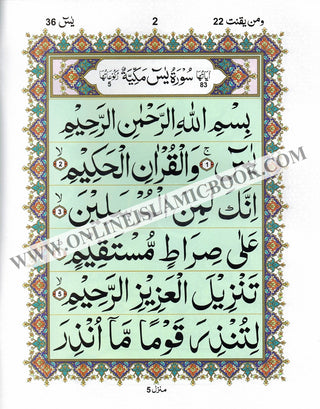 ومن يقنت 22 2 يٰسٓ 36
اٰيَاتُهَا 83 سُوْرَةُ يٰسٓ مَكِّيَّةٌ رُكُوْعَاتُهَا 5
بِسْمِ اللّٰهِ الرَّحْمٰنِ الرَّحِيْمِ
1 وَالْقُرْاٰنِ الْحَكِيْمِ 2
اِنَّكَ لَمِنَ 3
عَلٰى صِرَاطٍ مُّسْتَقِيْمٍ
تَنْزِيْلَ الْعَزِيْزِ الرَّحِيْمِ 5
لِتُنْذِرَ قَوْمًا مَّاۤ اُنْذِرَ
منزل 5
WWW.ONLINEISLAMICBOOK.COM